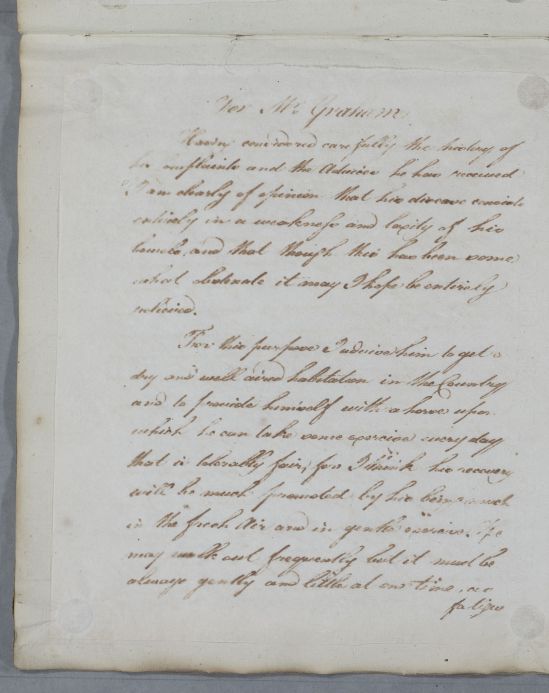 For Mr Graham
Having considered carefully the history of
his complaints and the Advices he has received
I am clearly of opinion that his disease consists
entirely in a weakness and laxity of his
bowels, and that though this has been some
what obstinate it may I hope be entirely
relieved.
For this purpose I advise him to get a
dry and well aired habitation in the Country
and to provide himself with a horse upon
which he can take some exercise every day
that is tolerably fair, for I think his recovery
will be much promoted by his being much
in the fresh Air and in gentle exercise. He
may walk out frequently but it must be
always gently and little at one time, as
fatigue